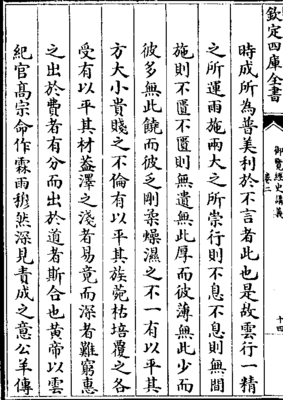 欽定四庫全書
御覽經史講義
卷二
十四
時成所為普美利於不言者此也是故雲行一精
之所運雨施兩大之所崇行則不息不息則無間
施則不匱不匱則無遺無此厚而彼薄無此少而
彼多無此饒而彼乏剛柔燥濕之不一有以平其
方大小貴賤之不倫有以平其族菀枯培覆之各
受有以平其材蓋澤之淺者易竟而深者難窮惠
之出於費者有分而出於道者斯合也黄帝以雲
紀官高宗命作霖雨穆然深見責成之意公羊傳